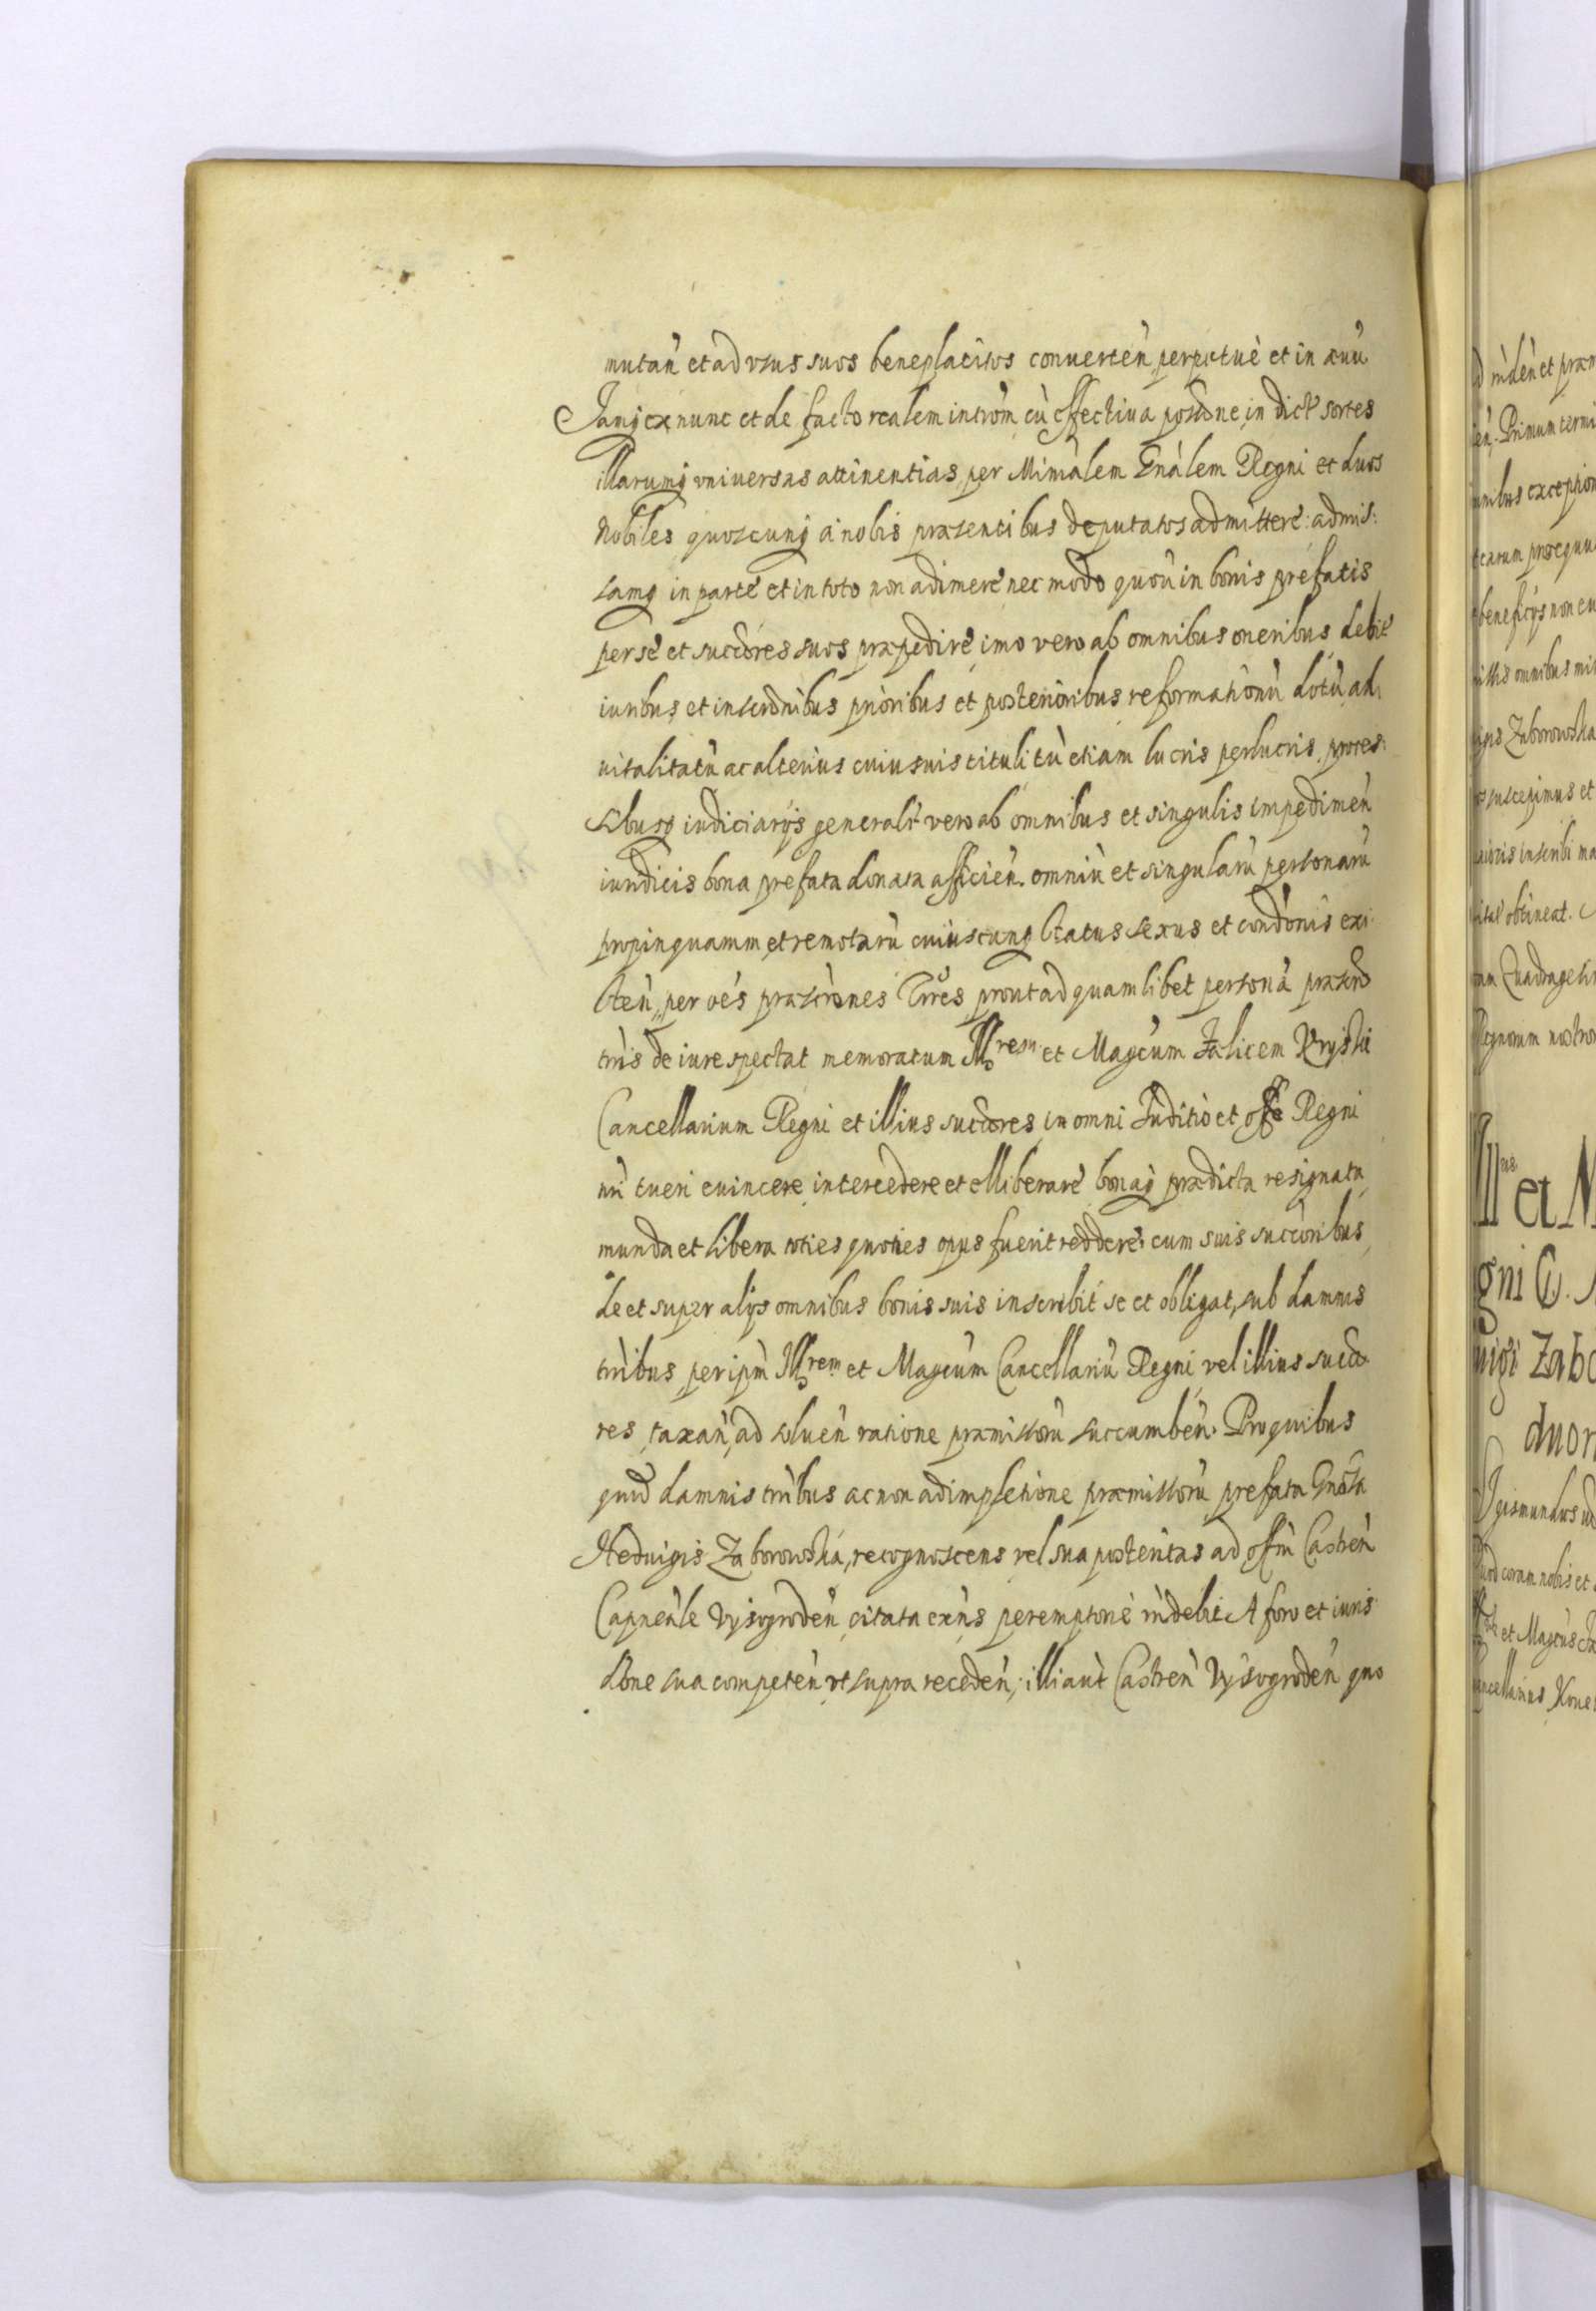 mutań et ad usus suos beneplacitos conuerteń perpetuè et in æuũ
Jamq ex nunc et de facto realem introm cũ effectiua possone in dict sortes
illarumq vniuersas attinentias per Minalem Gnalem Regni et duos
Nobiles quoscunq à nobis præsentibus deputatos admittere: admis:
samq in parte et in toto non adimere nec modo quouis in bonis prefatis
per se et succores suos præpedire imo vero ab omnibus oneribus debit
iuribus et inscronibus prioribus et posterioribus reformationũ dotũ ad,
uitalitatũ ac alterius cuiusuis tituli tũ etiam lucris perlucris proces:
sibusq iudiciarijs generalit vero ab omnibus et singulis impedimeń
iuridicis bona prefata donata afficień omniũ et singularũ personarũ
propinquarum et remotarũ cuiuscunq status sexus et condonis exi
steń per oes præscrones Trres prout ad quamlibet personã præscrip
tnis de iure spectat memoratum Illrem et Magcum Felicem Kryski
Cancellarium Regni et illius succores in omni Juditio et offo Regni
nri tueri euincere intercedere et elliberare bonaq prædicta resignata
munda et libera toties quoties opus fuerit reddere: cum suis succoribus
de et super alijs omnibus bonis suis inscribit se et obligat, sub damnis
trribus per ipm Illrem et Magcum Cancellariũ Regni vel illius succo
res taxań, ad solueń ratione præmissorũ succumbeń. Pro quibus
quid damnis trribus ac non adimpletione præmissorũ prefata Gnosa
Heduigis Zaborowska, recognoscens vel sua posteritas ad offm Castreń
Capneale Vyssogrodeń citata exns peremptorie rndebit A foro et iuris
dõne sua competeń vt supra recedeń; illi aut Castreń Vyssogrodeń quo
ad rnden et præm
Primum termi
exception
prosequu
beneficijs non eu
omnibus mis
Zaborowska
suscepimus et
inscribi ma
obtineat.
Quadragesim
Regnorum nostror
Illris et M
gni C.
Zabo
duor
gismundus
coram nobis et
et Magcus
ancellarius